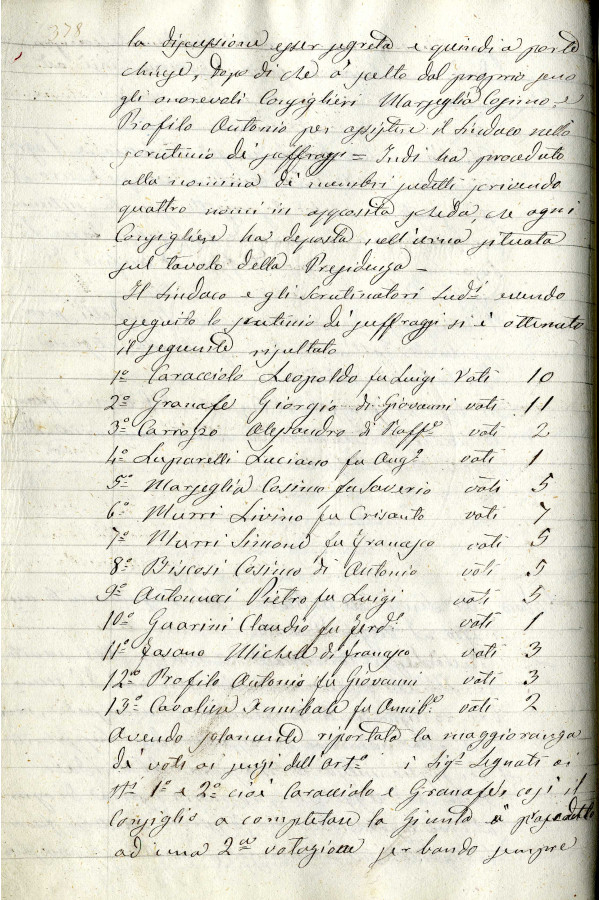 378
la discussione esser segreta e quindi a porte
chiuse, Dopo di che à scelto dal proprio seno
gli onorevoli Consiglieri Marseglia Cosimo, e
Profilo Antonio per assistere il Sindaco nello
scrutinio de' suffraggi = Indi ha proceduto
alla nomina de' membri sudetti scrivendo
quattro nomi in apposita scheda, che ogni
Consigliere ha deposta nell'urna situata
sul tavolo della Presidenza –
Il Sindaco e gli Scrutinatori Sudi avendo
eseguito lo scrutinio de' suffraggi si è ottenuto
il seguente risultato
1º Caracciolo Leopoldo fu Luigi Voti 10
2º Granafei Giorgio di Giovanni voti 11
3º Carrozzo Alessandro di Raffº voti 2
4º Luparelli Luciano fu Angº voti 1
5º Marseglia Cosimo fu Saverio voti 5
6º Murri Livino fu Crisanto voti 7
7º Murri Simone fu Francesco voti 5
8º Biscosi Cosimo di Antonio voti 5
9º Antonucci Pietro fu Luigi voti 5
10º Guarini Claudio fu Ferdº voti 1
11º Fasano Michele di Francesco voti 3
12º Profilo Antonio fu Giovanni voti 3
13º Cavaliere Annibale fu Annibº voti 2
Avendo solamente riportato la maggioranza
de' voti ai sensi dell'Artº i Sigi Segnati ai
Ni 1º e 2º cioè Caracciolo e Granafei così il
Consiglio a completare la Giunta à proceduto
ad una 2ª votazione serbando sempre